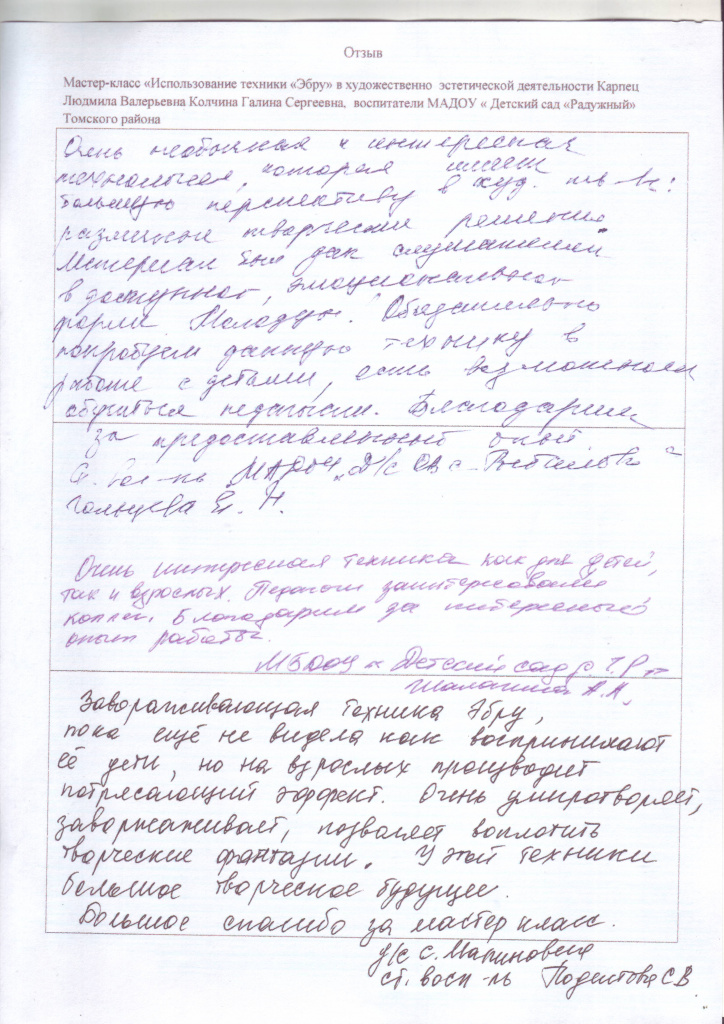 Отзыв
Мастер-класс «Использование техники «Эбру» в художественно эстетической деятельности Карпец
Людмила Валерьевна Колчина Галина Сергеевна, воспитатели МАДОУ « Детский сад «Радужный»
Томского района
Очень необычная и интересная
технология, которая имеет
большую перспективу в худ. тв-ве:
различные творческие решения
Материал был дан слушателям
в доступной, эмоциональной
форме. Молодцы! Обязательно
попробуем данную технику в
работе с детьми, есть возможность
обучиться педагогам. Благодарим
за предоставленный опыт.
Ст. вос-ль МАДОУ „Д/с ОВ с. Рыбалово"
Гольцева Е. Н.
Очень интересная техника как для детей,
так и взрослых. Педагоги заинтересовали
коллег. Благодарим за интересный
опыт работы.
МБДОУ « Детский сад
А.А.
Завораживающая техника Эбру,
пока ещё не видела как воспринимают
её дети, но на взрослых производит
потрясающий эффект. Очень умиротворяет,
завораживает, позволяет воплотить
творческие фантазии. У этой техники
большое творческое будущее.
Большое спасибо за мастер класс.
д/с с. Малиновка
ст. восп-ль С В